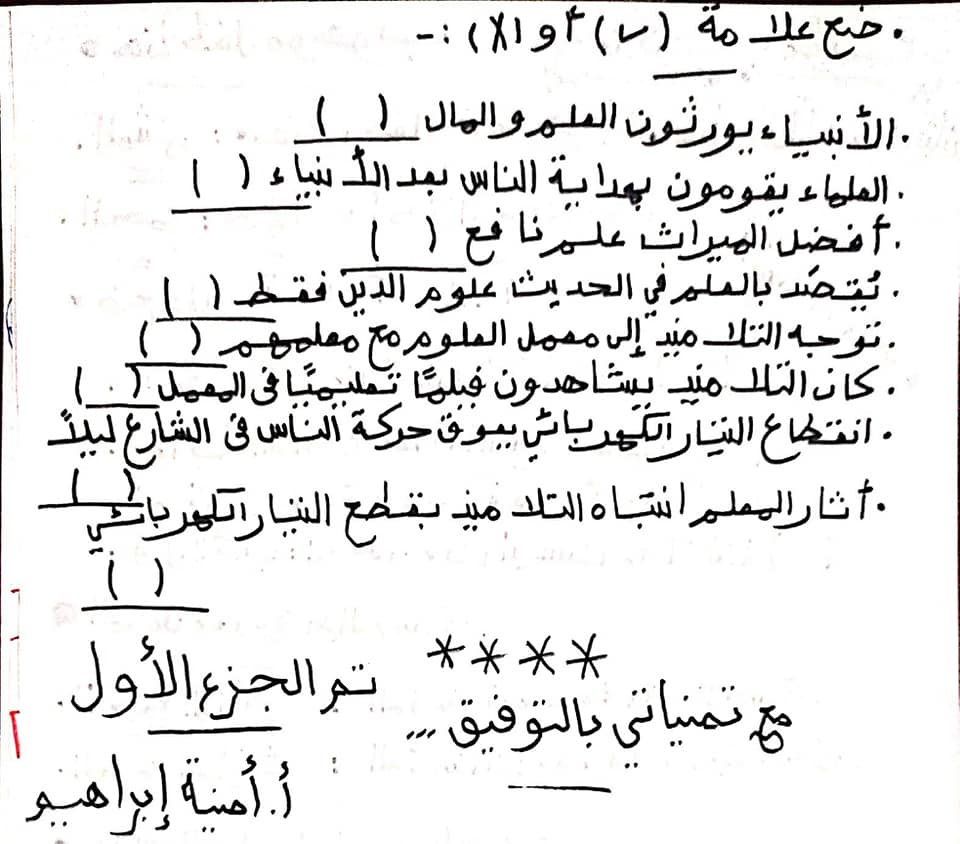 . ضع علامة (✓) أو (X) :-
. الأنبياء يورثون العلم والمال ( )
. العلماء يقومون بهداية الناس بعد الأنبياء ( )
. أفضل الميراث علم نافع ( )
. يُقصَد بالعلم في الحديث علوم الدين فقط ( )
. توجه التلاميذ إلى معمل العلوم مع معلمهم ( )
. كان التلاميذ يشاهدون فيلمًا تعليميًا في المعمل ( )
. انقطاع التيار الكهربائي يعوق حركة الناس في الشارع ليلاً
( )
. أثار المعلم انتباه التلاميذ بقطع التيار الكهربائي
( )
****
تم الجزء الأول.
مع تمنياتي بالتوفيق ...
أ. أمنية إبراهيم